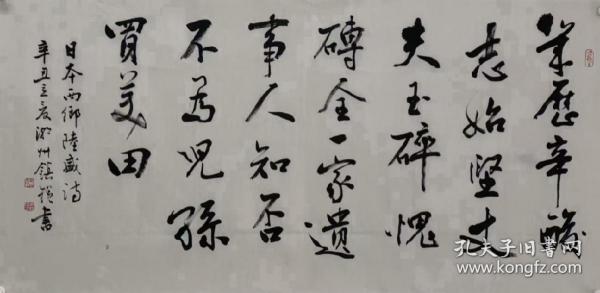 幾歷辛酸
志始堅丈
夫玉碎愧
磚全一家遺
事人知否
不為兒孫
買美田
日本西鄉隆盛詩
辛丑立夏州鎮書
孔夫子旧书网
www.kongfz.com